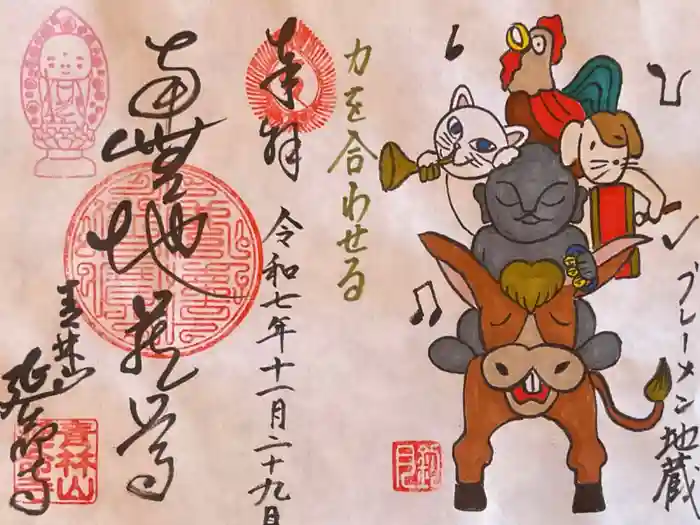 ブレーメン地蔵
力を合わせる
奉拝
令和七年十一月二十九日
南無地蔵尊
青林山
延命寺
青林山